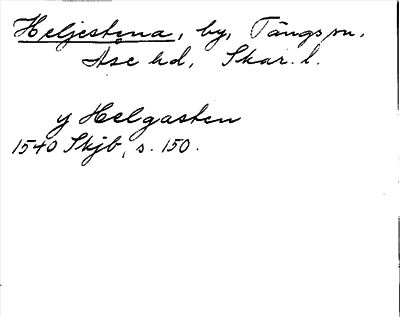 Heljestena, by, Tångs sn.
Åse hd, Skar. l.
y Helgasten
1540 Skjb, s. 150.